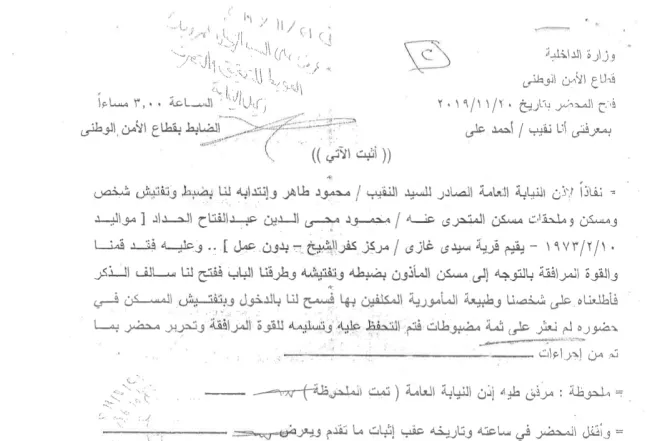 وزارة الداخلية
قطاع الأمن الوطنى
فتح المحضر بتاريخ ٢٠١٩/١١/٢٠ الساعة ٣,٠٠ مساءاً
بمعرفتى أنا نقيب / أحمد على الضابط بقطاع الأمن الوطنى
(( أثبت الآتي ))
= نفاذاً لإذن النيابة العامة الصادر للسيد النقيب / محمود طاهر وإنتدابه لنا بضبط وتفتيش شخص
ومسكن وملحقات مسكن المتحرى عنه / محمود محى الدين عبدالفتاح الحداد [ مواليد
١٩٧٣/٢/١٠ – يقيم قرية سيدى غازى / مركز كفرالشيخ – بدون عمل ] .. وعليه فقد قمنا
والقوة المرافقة بالتوجه إلى مسكن المأذون بضبطه وتفتيشه وطرقنا الباب ففتح لنا سالف الذكر
فأطلعناه على شخصنا وطبيعة المأمورية المكلفين بها فسمح لنا بالدخول وبتفتيش المسكن في
حضوره لم نعثر على ثمة مضبوطات فتم التحفظ عليه وتسليمه للقوة المرافقة وتحرير محضر بما
تم من إجراءات
= ملحوظة : مرفق طيه إذن النيابة العامة ( تمت الملحوظة )
= وأقفل المحضر في ساعته وتاريخه عقب إثبات ما تقدم ويعرض